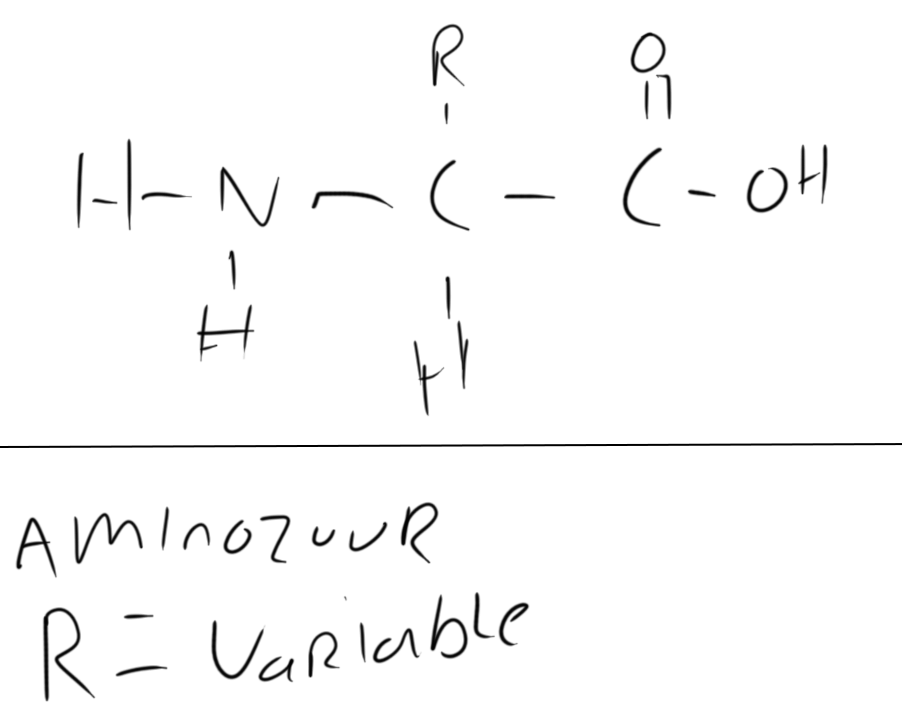 R O
H - N - C - C - OH
H H
AMINOZUUR
R = Variable